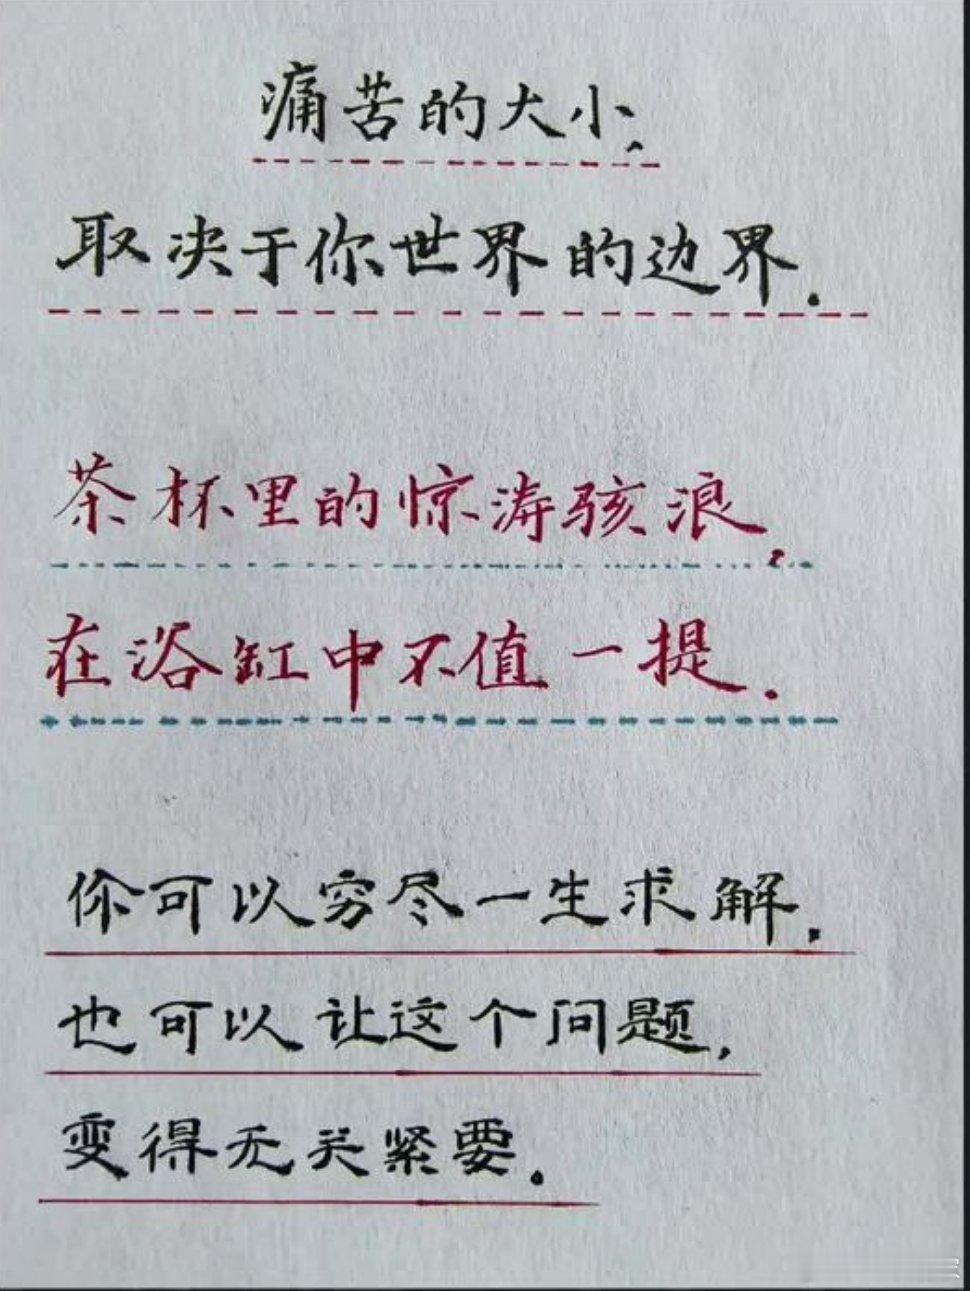 痛苦的大小,
取决于你世界的边界.
茶杯里的惊涛骇浪,
在浴缸中不值一提.
你可以穷尽一生求解.
也可以让这个问题,
变得无关紧要.